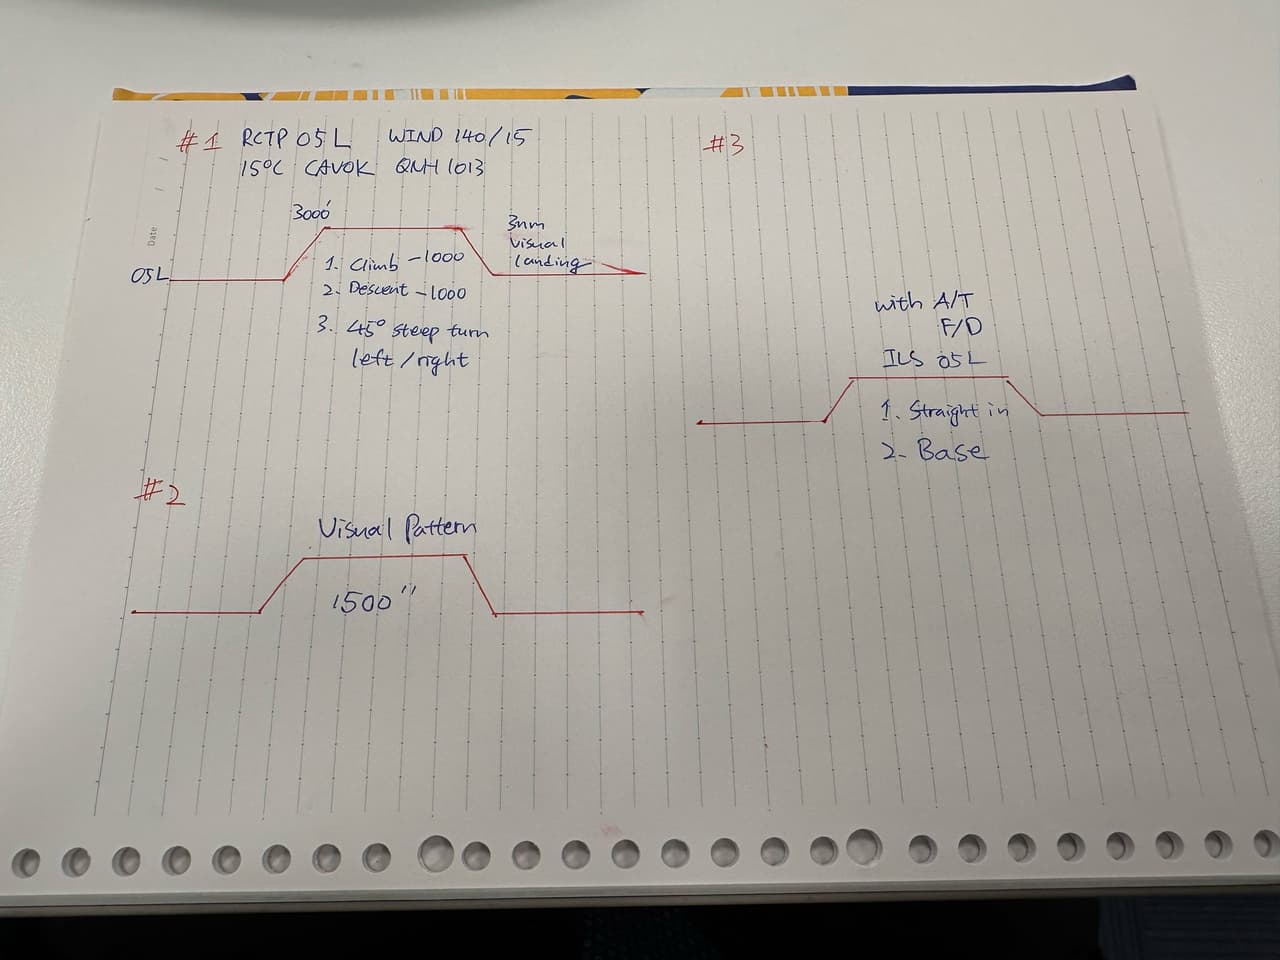 #1 RCTP 05L WIND 140/15
15°C CAVOK QNH 1013
3000'
05L
1. Climb -1000
2. Descent -1000
3. 45° steep turn
left/right
3nm
Visual
landing
#2
Visual Pattern
1500''
#3
with A/T
F/D
ILS 05L
1. Straight in
2- Base
Date